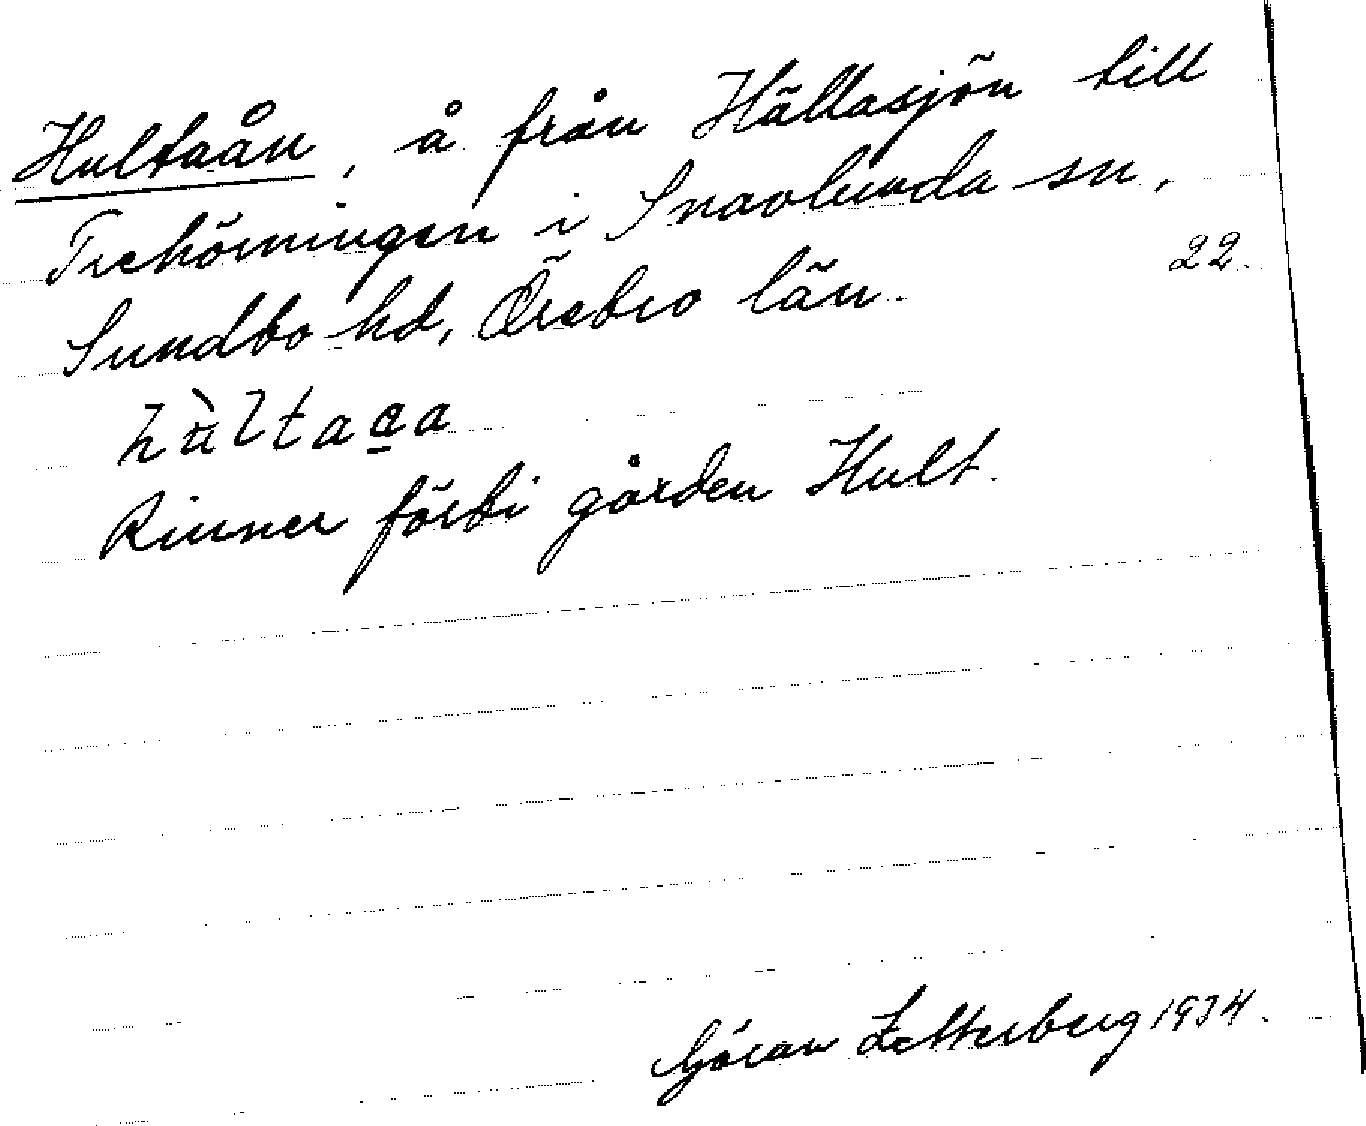 Hultaån, å från Hällasjön till
Trehörningen i Snavlunda sn,
22.
Sundbo hd, Örebro län.
hu̇̀ltaa̱a
Rinner förbi gården Hult.
Göran Zetterberg 1934.